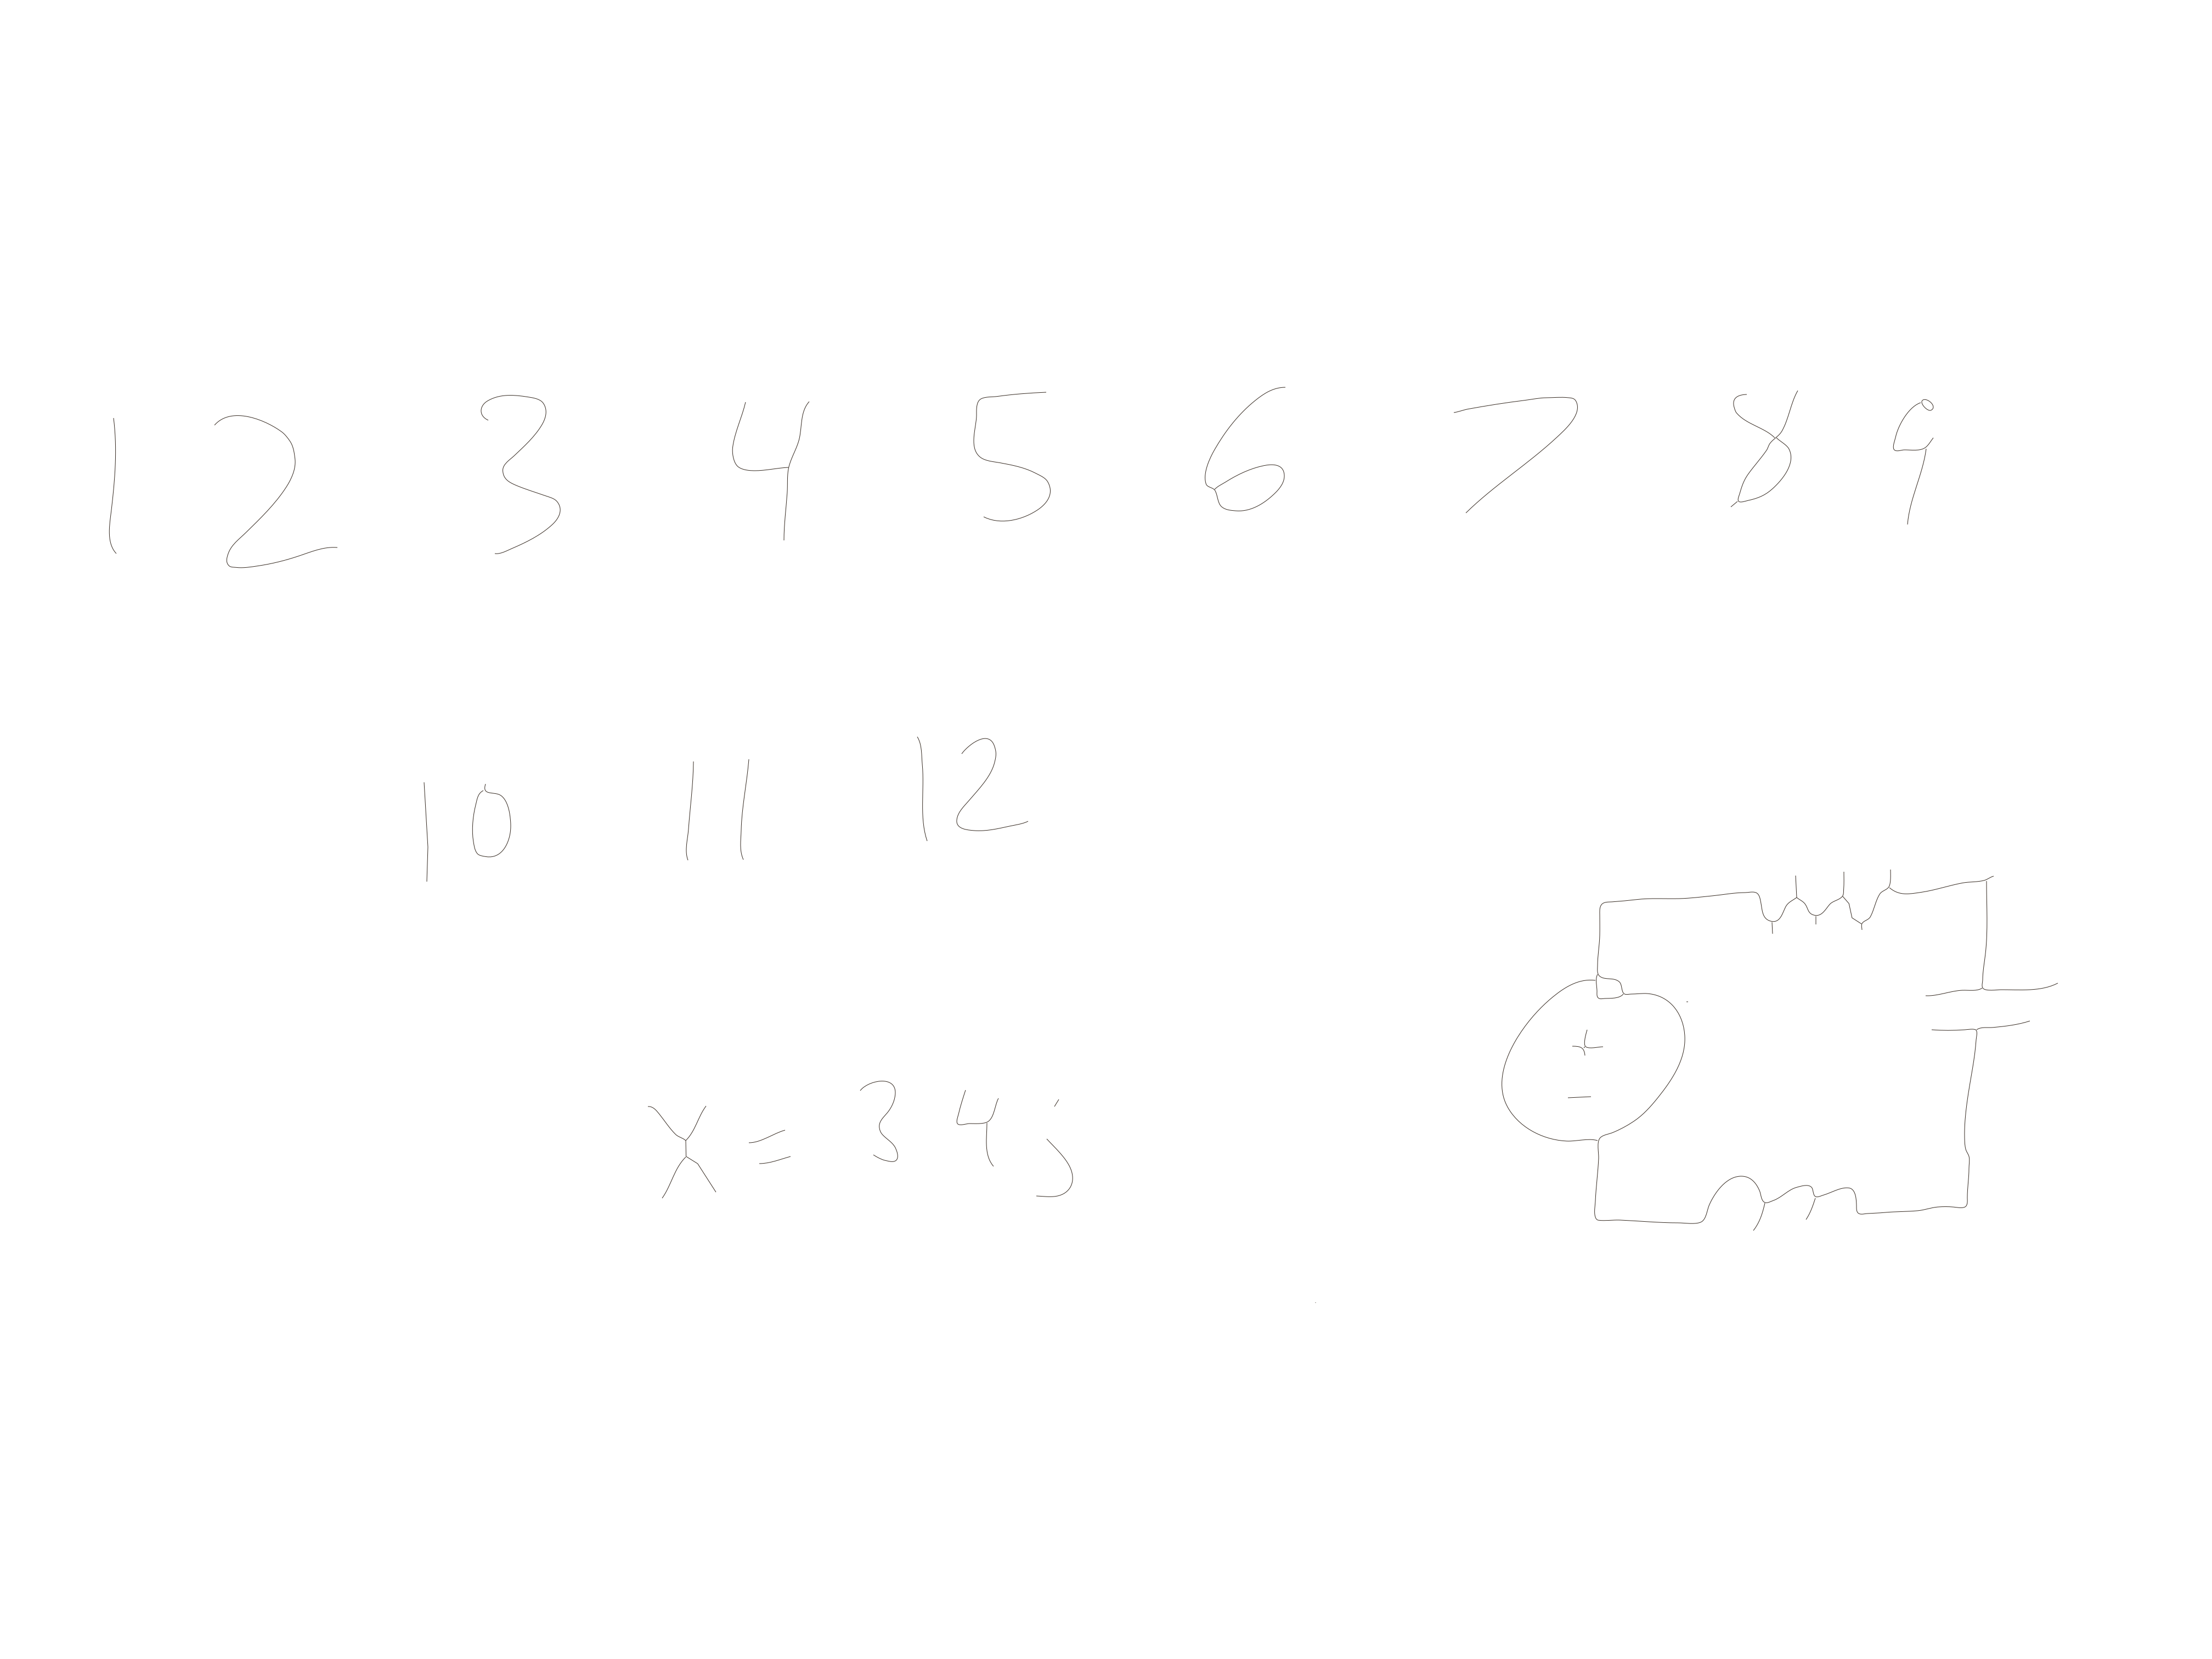 1 2 3 4 5 6 7 8 9
10 11 12
x = 345
+
-